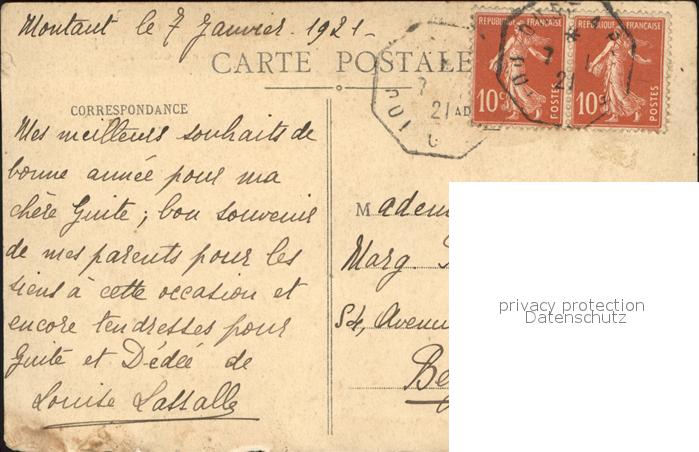 Montaut le 7 Janvier 1921-
CARTE POSTALE
RÉPUBLIQUE FRANÇAISE
10c POSTES
RÉPUBLIQUE FRANÇAISE
10c POSTES
7
21
7
21
CORRESPONDANCE
AD
Mes meilleurs souhaits de
bonne année pour ma
chère Guite; bon souvenir
de mes parents pour les
siens à cette occasion et
encore tendresses pour
Guite et Dédée de
Louise Lassalle
Madem
Marg.
Avenu
privacy protection
Datenschutz